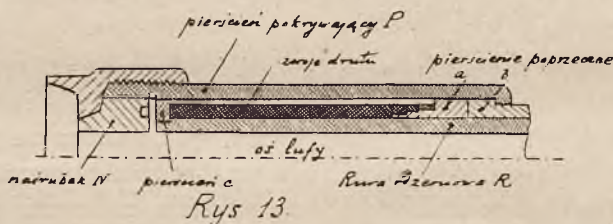 pierścień pokrywający P
zwoje drutu
pierścienie poprzeczne
a
b
c
oś lufy
nasrubek N
pierścień c
Rura rdzeniowa R
Rys 13.